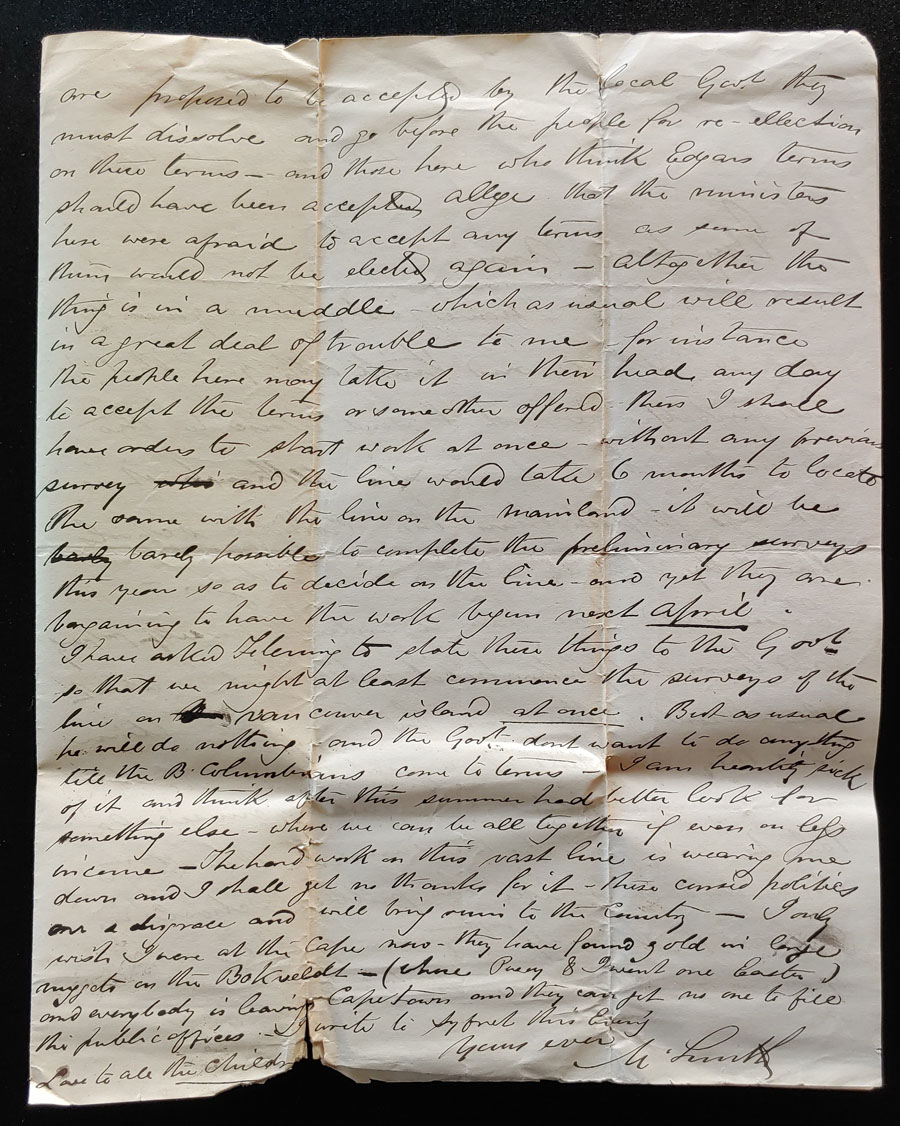 are proposed to be accepted by the local Govt. they
must dissolve and go before the people for re-ellection
on these terms – and those here who think Edgars terms
should have been accepted allege that the ministers
here were afraid to accept any terms as some of
them would not be elected again – altogether the
thing is in a muddle – which as usual will result
in a great deal of trouble to me – for instance
the people here may take it in their head any day
to accept the terms or some other offered – then I shall
have orders to start work at once – without any previous
survey and the line would take 6 months to locate
the same with the line on the mainland – it will be
barely barely possible to complete the preliminary surveys
this year so as to decide on the line – and yet they are
bargaining to have the work begun next April .
I have asked Fleming to state these things to the Govt
so that we might at least commence the surveys of the
line on vancouver island at once . But as usual
he will do nothing – and the Govt. dont want to do anything
till the B. Columbians come to terms – I am heartily sick
of it and think after this summer had better look for
something else – where we can be all together if even on less
income – The hard work on this vast line is wearing me
down and I shall get no thanks for it – these cursed politics
are a disgrace and will bring ruin to the Country – I only
wish I were at the Cape now – they have found gold in large
nuggets in the Bokveldt – (where & I went one Easter)
and everybody is leaving Capetown and they can get no one to fill
the public offices . I write to Syfret this Eveng
Yours ever
M Smith
Love to all the Childn